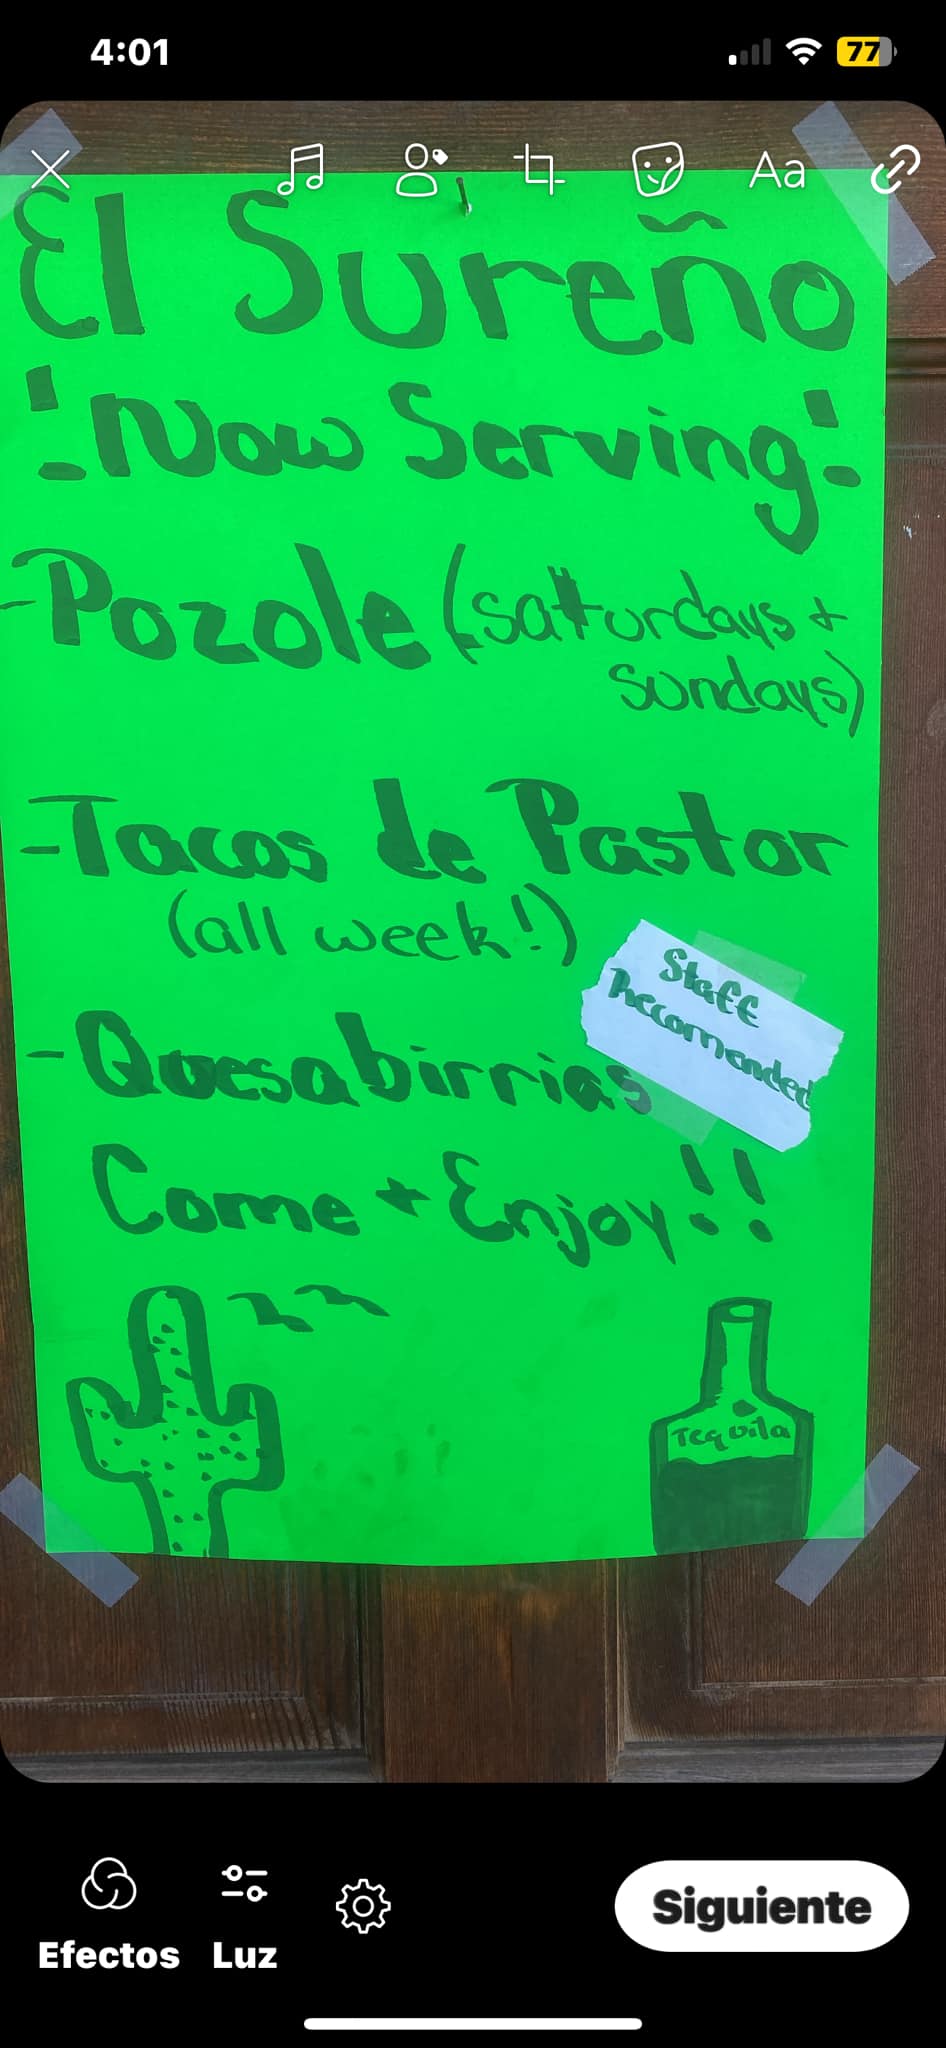 4:01
77
Aa
El Sureño
¡Now Serving!
-Pozole (saturdays +
sundays)
-Tacos de Pastor
(all week!)
Staff
Reccomended
-Quesabirrias
Come + Enjoy!!
Tequila
Efectos
Luz
Siguiente